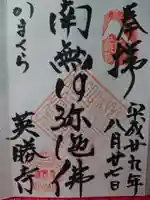 奉拝
平成廿九年
八月廿七日
南無阿弥陀佛
かまくら
英勝寺